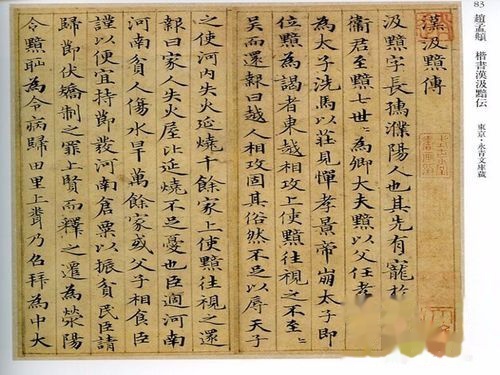 83
趙孟頫 楷書漢汲黯伝
東京・永青文庫蔵
漢汲黯傳
汲黯字長孺濮陽人也其先有寵於
衛君至黯七世〻為卿大夫黯以父任孝
為太子洗馬以莊見憚孝景帝崩太子即
位黯為謁者東越相攻上使黯往視之不至
吳而還報曰越人相攻固其俗然不足以辱天子
之使河內失火延燒千餘家上使黯往視之還
報曰家人失火屋比延燒不足憂也臣過河南
河南貧人傷水旱萬餘家或父子相食臣
謹以便宜持節發河南倉粟以振貧民臣請
歸節伏矯制之罪上賢而釋之遷為滎陽
令黯恥為令病歸田里上聞乃召拜為中大